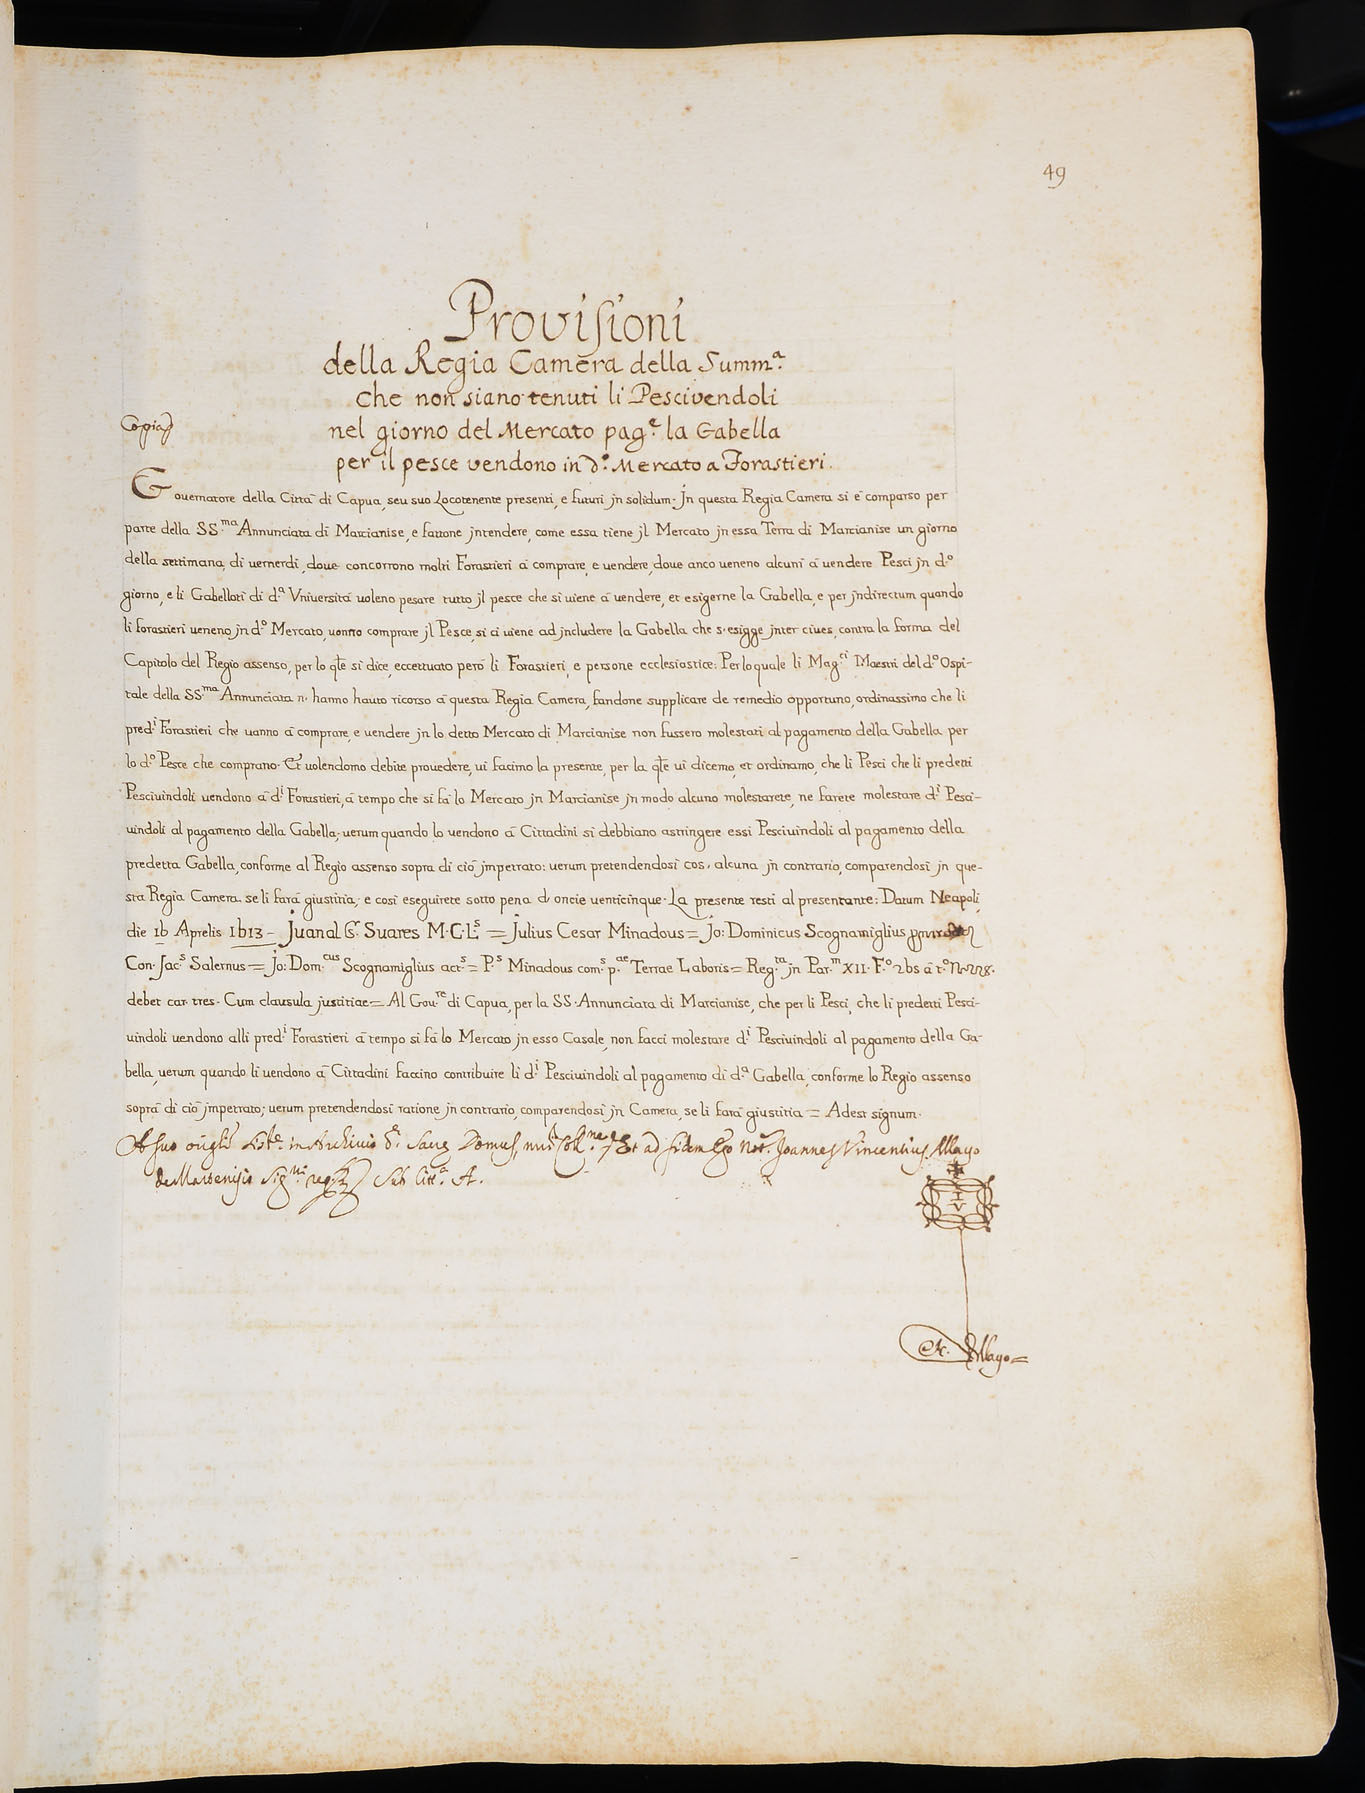 49
Provisioni
della Regia Camera della Summ.ª
Che non siano tenuti li Pescivendoli
Copia
nel giorno del Mercato pag.ᵉ la Gabella
per il pesce vendono in d.º Mercato a Forastieri.
Gouernatore della Cittâ di Capua, seu suo Locotenente presenti, e futuri jn solidum. Jn questa Regia Camera si e comparso per
parte della SS.ᵐᵃ Annunciata di Marcianise, e fattone jntendere, come essa tiene jl Mercato jn essa Terra di Marcianise un giorno
della settimana, di vernerdi, doue concorrono molti Forastieri â comprare, e vendere, doue anco ueneno alcuni â uendere Pesci jn d.º
giorno, e li Gabelloti di d.ª Vniuersitâ uoleno pesare tutto jl pesce che si uiene â uendere, et esigerne la Gabella, e per jndirectum quando
li forastieri ueneno jn d.º Mercato, uonno comprare jl Pesce, si ci uiene ad jncludere la Gabella che s'esigge jnter ciues, contra la forma del
Capitolo del Regio assenso, per lo qłe si dice, eccettuato perô li Forastieri, e persone ecclesiastice: Per lo quale li Mag.ᶜⁱ Maestri del d.º Ospi-
tale della SS.ᵐᵃ Annunciata n. hanno hauto ricorso â questa Regia Camera, fandone supplicare de remedio opportuno, ordinassimo che li
pred.ⁱ Forastieri che uanno â comprare, e uendere jn lo detto Mercato di Marcianise non fussero molestati al pagamento della Gabella per
lo d.º Pesce che comprano. Et uolendomo debite prouedere, ui facimo la presente, per la qłe ui dicemo, et ordinamo, che li Pesci che li predetti
Pesciuindoli uendono â d.ⁱ Forastieri, â tempo che si fâ lo Mercato jn Marcianise jn modo alcuno molestarete, ne farete molestare d.ⁱ Pesci-
uindoli al pagamento della Gabella; uerum quando lo uendono â Cittadini si debbiano astringere essi Pesciuindoli al pagamento della
predetta Gabella, conforme al Regio assenso sopra di ciô jmpetrato: uerum pretendendosi cos, alcuna jn contrario, comparendosi jn que-
sta Regia Camera. se li farâ giustitia, e cosi eseguirete sotto pena d'oncie uenticinque. La presente resti al presentante: Datum Neapoli
die 16 Aprelis 1613 - Juan al G.ʳ Suares M.C.L.ˢ = Julius Cesar Minadous = Jo: Dominicus Scognamiglius
Con. Jac.ˢ Salernus = Jo: Dom.ᶜᵘˢ Scognamiglius act.ˢ = P.ˢ Minadous com.ˢ p.ᵃᵉ Terrae Laboris = Reg.ᵗᵃ jn Par.ᵐ XII. F.º 265 â t.º
debet car. tres. Cum clausula justitiae = Al Gou.ʳᵉ di Capua, per la SS. Annunciata di Marcianise, che per li Pesci, che li predetti Pesci-
uindoli uendono alli pred.ⁱ Forastieri â tempo si fâ lo Mercato jn esso Casale, non facci molestare d.ⁱ Pesciuindoli al pagamento della Ga-
bella, uerum quando li uendono â Cittadini faccino contribuire li d.ⁱ Pesciuindoli al pagamento di d.ª Gabella, conforme lo Regio assenso
soprâ di ciô jmpetrato; uerum pretendendosi ratione jn contrario, comparendosi jn Camera, se li farâ giustitia = Adest signum.
A suo in Archivio Domus Et ad fidem Ego Not.ʳ Joannes Vincentius Allayo
de Marcenisio Sub litt.ª A.
I V